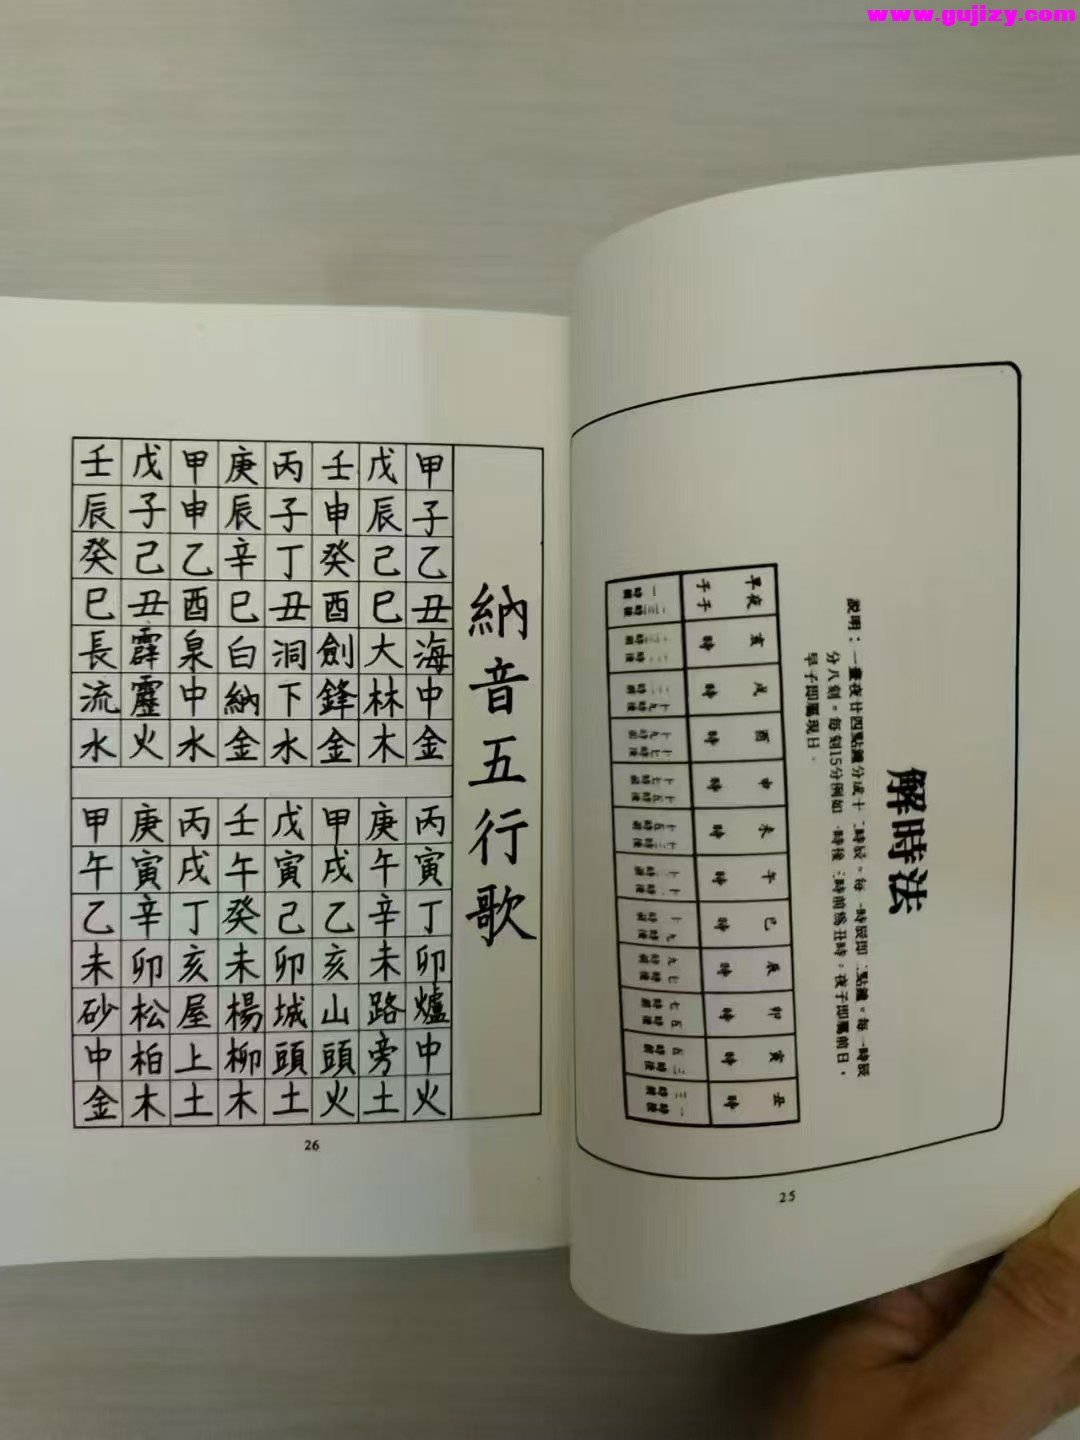 www.gujizy.com
解時法
説明：一晝夜廿四點鐘分成十二時辰。每一時辰即二點鐘。每一時辰
分八刻。每刻15分例如一時後三時前為丑時。夜子即屬前日，
早子即屬現日.
夜子
早子
亥時
戌時
酉時
申時
未時
午時
巳時
辰時
卯時
寅時
丑時
25
納音五行歌
甲子乙丑海中金
丙寅丁卯爐中火
戊辰己巳大林木
庚午辛未路旁土
壬申癸酉劍鋒金
甲戌乙亥山頭火
丙子丁丑洞下水
戊寅己卯城頭土
庚辰辛巳白納金
壬午癸未楊柳木
甲申乙酉泉中水
丙戌丁亥屋上土
戊子己丑霹靂火
庚寅辛卯松柏木
壬辰癸巳長流水
甲午乙未砂中金
26